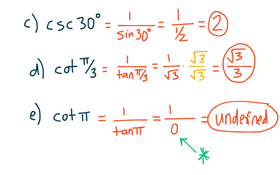 c) csc 30° = 1/sin30° = 1/1/2 = 2
d) cot π/3 = 1/tan π/3 = 1/√3 √3/√3 = √3/3
e) cot π = 1/tan π = 1/0 = undefined
*